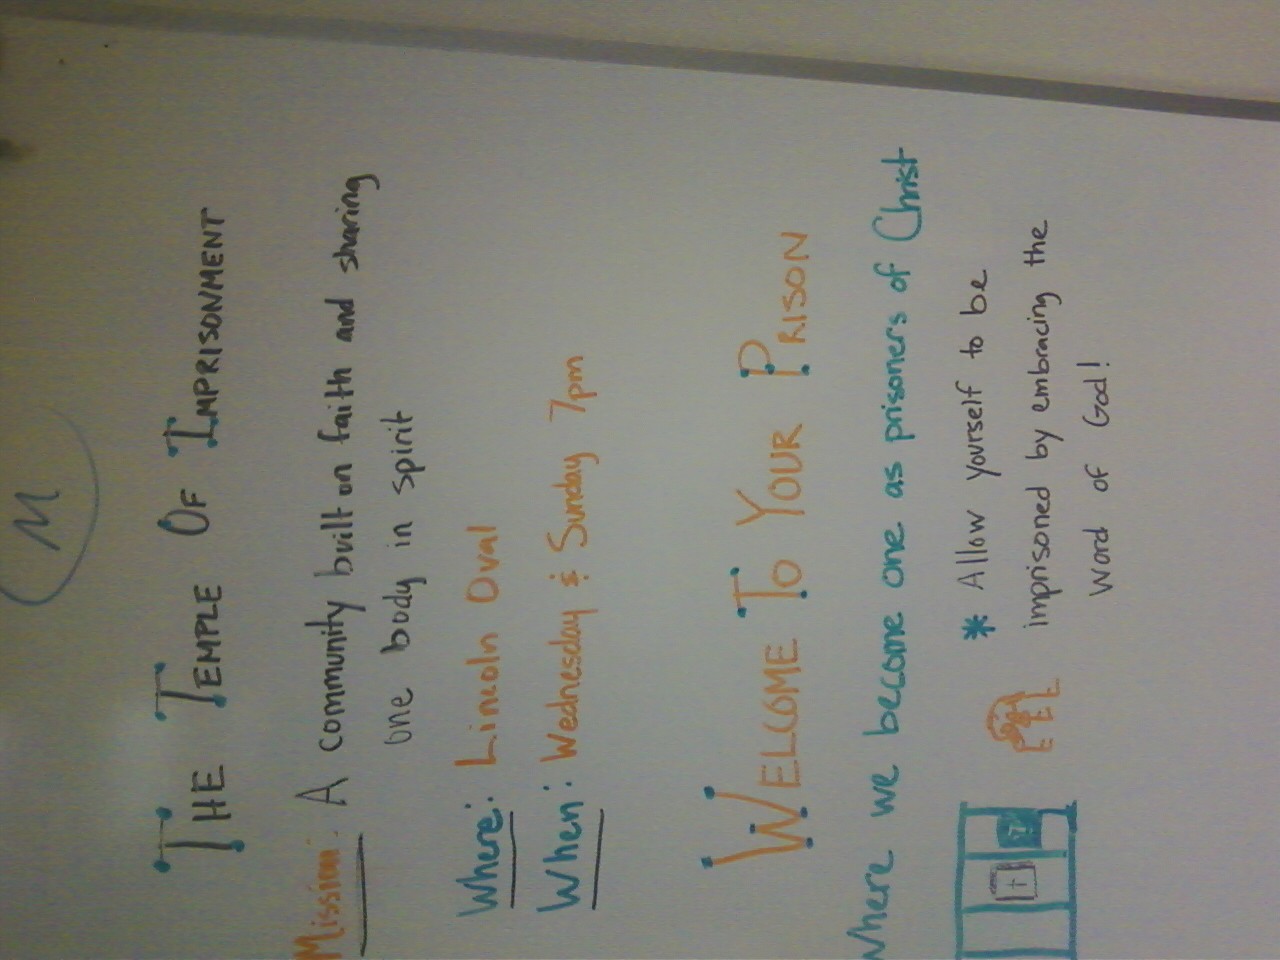 M
THE TEMPLE OF IMPRISONMENT
Mission: A community built on faith and sharing
one body in spirit
Where: Lincoln Oval
When: Wednesday & Sunday 7pm
WELCOME TO YOUR PRISON
Where we become one as prisoners of Christ
* Allow yourself to be
imprisoned by embracing the
word of God!